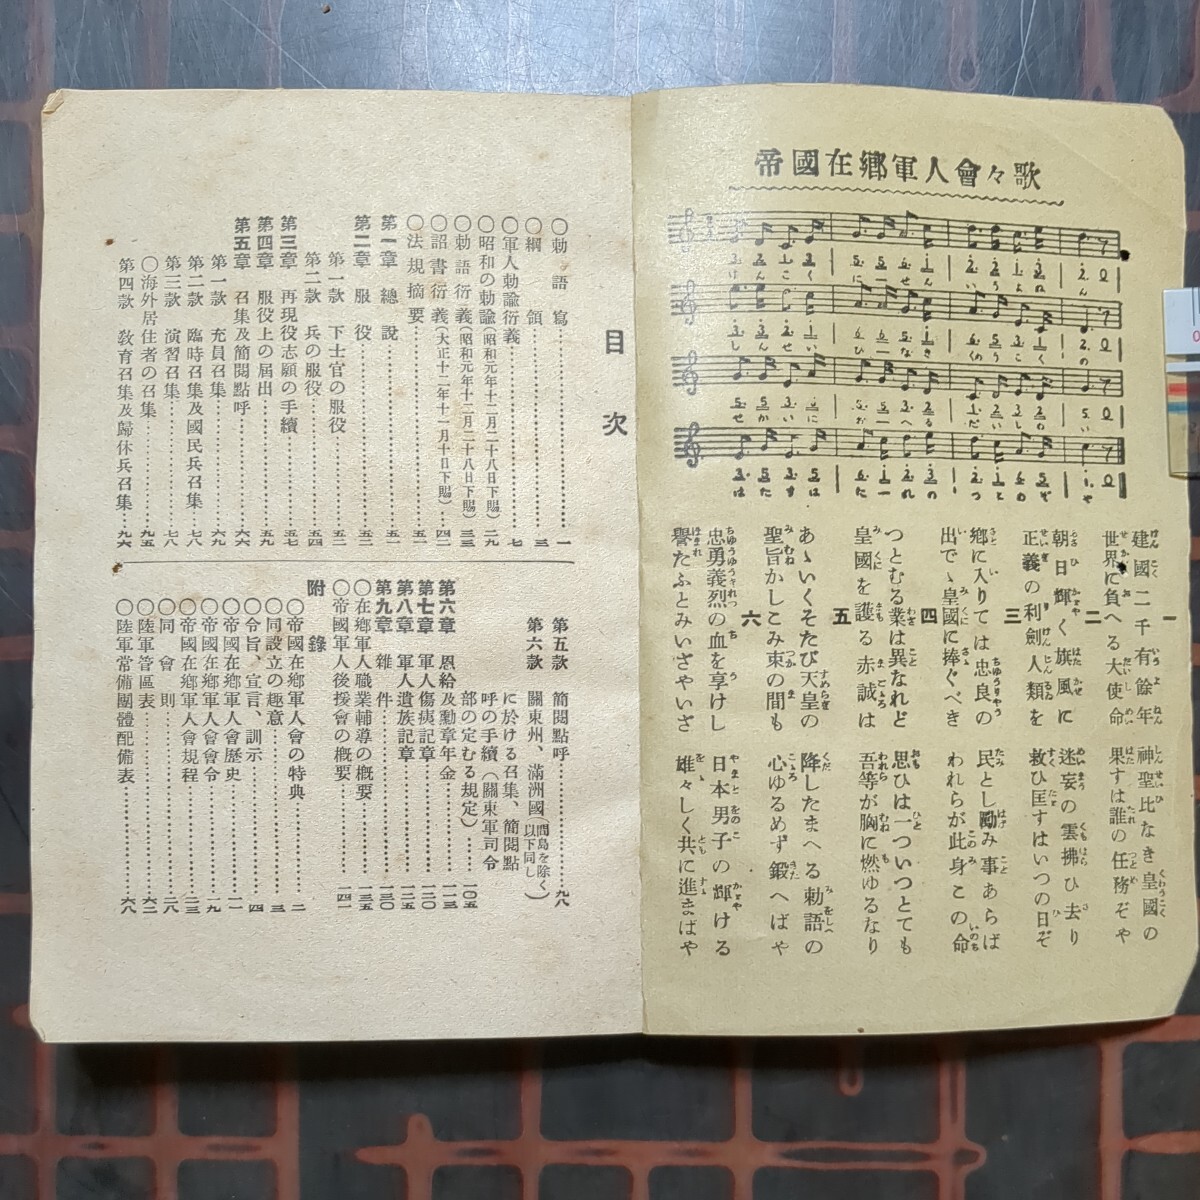 帝國在鄕軍人會々歌
一
建國二千有餘年
神聖比なき皇國の
世界に負へる大使命
果すは誰の任務ぞや
二
朝日輝く旗風に
迷妄の雲拂ひ去り
正義の利劍人類を
救ひ匡すはいつの日ぞ
三
鄕に入りては忠良の
民とし勵み事あらば
出でゝ皇國に捧ぐべき
われらが此身この命
四
つとむる業は異なれど
思ひは一ついつとても
皇國を護る赤誠は
吾等が胸に燃ゆるなり
五
あゝいくそたび天皇の
降したまへる勅語の
聖旨かしこみ束の間も
心ゆるめず鍛へばや
六
忠勇義烈の血を享けし
日本男子の輝ける
譽たふとみいざやいざ
雄々しく共に進まばや
目次
〇勅語寫……一
〇綱領……三
〇軍人勅諭衍義……七
〇昭和の勅諭(昭和元年十二月二十八日下賜)……二九
〇勅語衍義(昭和元年十二月二十八日下賜)……三三
〇詔書衍義(大正十二年十一月十日下賜)……四二
〇法規摘要……五一
第一章 總說……五一
第二章 服役……五三
第一款 下士官の服役……五三
第二款 兵の服役……五四
第三章 再現役志願の手續……五七
第四章 服役上の屆出……五九
第五章 召集及簡閱點呼……六六
第一款 充員召集……六八
第二款 臨時召集及國民兵召集……七八
第三款 演習召集……七八
〇海外居住者の召集……九五
第四款 敎育召集及歸休兵召集……九六
第五款 簡閱點呼……九八
第六款 關東州、滿洲國(間島を除く以下同し)
に於ける召集、簡閱點
呼の手續(關東軍司令
部の定むる規定)……一〇五
第六章 恩給及勳章年金……一一三
第七章 軍人傷痍記章……一二〇
第八章 軍人遺族記章……一二五
第九章 雜件……一三〇
〇在鄕軍人職業輔導の槪要……一三五
〇帝國軍人後援會の槪要……一四一
附錄
〇帝國在鄕軍人會の特典……二
〇同設立の趣意……三
〇令旨、宣言、訓示……四
〇帝國在鄕軍人會歷史……一一
〇帝國在鄕軍人會會令……一九
〇帝國在鄕軍人會規程……二三
〇同會則……二八
〇陸軍管區表……六二
〇陸軍常備團體配備表……六八